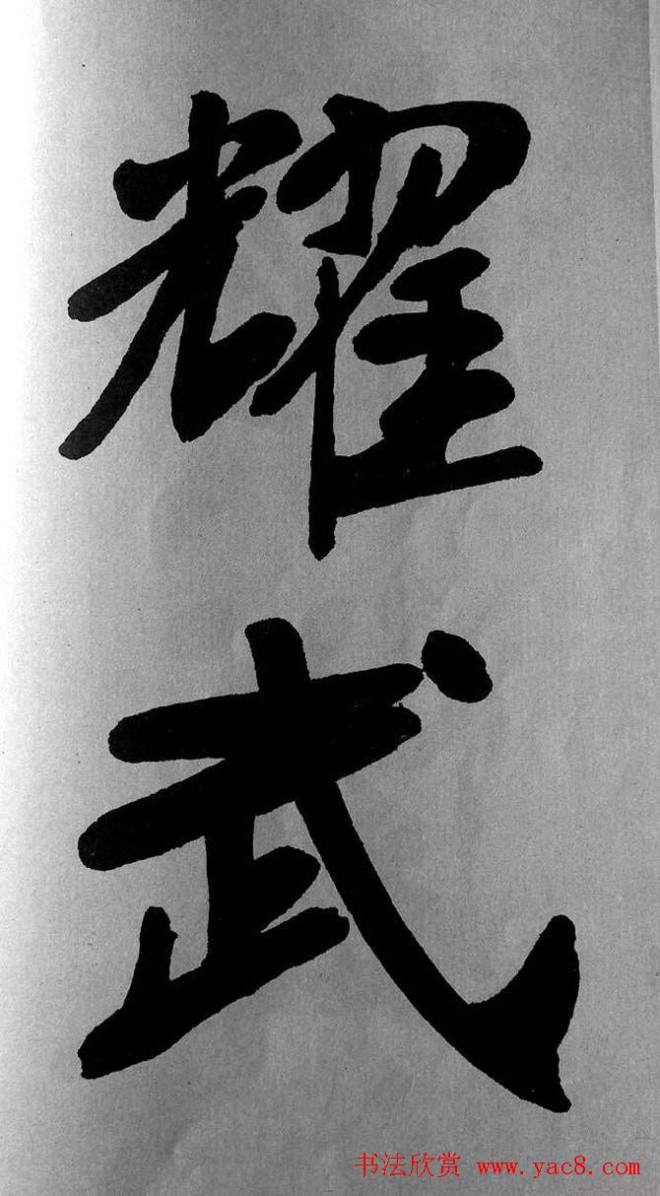 耀武
书法欣赏 www.yac8.com